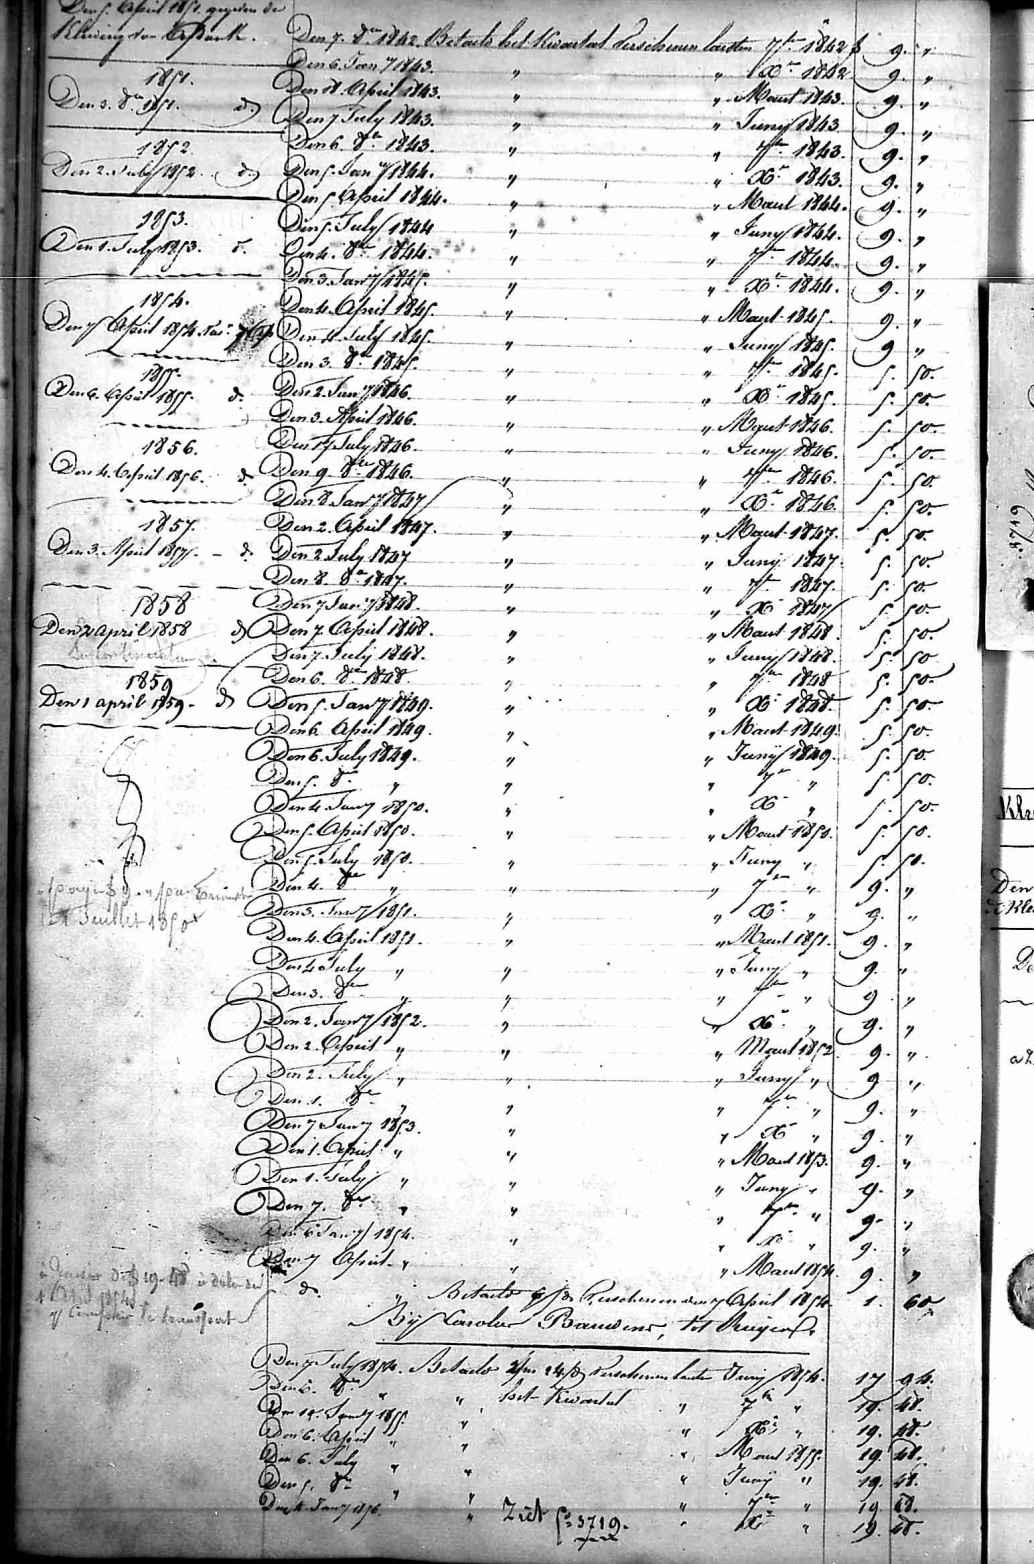 Den 5. April 1851. gegeven de
Kleding van
1851.
Den 3. 8er 1851. d
1852
Den 2. July 1852. d
1853.
Den 1. July 1853. d.
1854.
Den 7 April 1854
1855.
Den 6. April 1855. d.
1856.
Den 4. April 1856. d
1857.
Den 3. April 1857. - d.
1858
Den 2 april 1858 d
1859
Den 1 april 1859 - d
1er Juillet 1850
Den 7. 8er 1842. Betaelt het Kwartael Verschenen laesten 7ber 1842 f 9. "
Den 6. Janry 1843. " " Xr 1842 9. "
Den 8. April 1843. " " Maert 1843. 9. "
Den 7 July 1843. " " Juny 1843. 9. "
Den 6. 8er 1843. " " 7ber 1843. 9. "
Den 5. Janry 1844. " " Xr 1843. 9. "
Den 5 April 1844. " " Maert 1844. 9. "
Den 5 July 1844 " " Juny 1844. 9. "
Den 4. 8er 1844. " " 7ber 1844. 9. "
Den 3. Janry 1845. " " Xr 1844. 9. "
Den 4. April 1845. " " Maert 1845. 9. "
Den 4. July 1845. " " Juny 1845. 9 "
Den 3. 8er 1845. " " 7ber 1845. 5. 50.
Den 2. Janry 1846. " " Xr 1845. 5. 50.
Den 3. April 1846. " " Maert 1846. 5. 50.
Den July 1846. " " Juny 1846. 5. 50.
Den 9. 8er 1846. " " 7ber 1846 5. 50
Den 8 Janry 1847 " " Xr 1846. 5. 50.
Den 2. April 1847. " " Maert 1847. 5. 50.
Den 2 July 1847 " " Juny 1847. 5. 50.
Den 8. 8er 1847. " " 7ber 1847. 5. 50.
Den 7 Janry 1848. " " Xr 1847 5. 50.
Den 7. April 1848. " " Maert 1848. 5. 50.
Den 7 July 1848. " " Juny 1848. 5. 50
Den 6. 8er 1848. " " 7ber 1848 5. 50
Den 5. Janry 1849. " " Xr 1848. 5. 50
Den 6. April 1849. " " Maert 1849. 5. 50.
Den 6. July 1849. " " Juny 1849. 5. 50.
Den 5. 8er " " " 7er " 5. 50.
Den 4. Janry 1850. " " Xr " 5. 50.
Den 5. April 1850. " " Maert 1850. 5. 50.
Den 5 July 1850. " " Juny " 5. 50.
Den 4. 8er " " " 7er " 9. "
Den 3. Janry 1851. " " Xr " 9. "
Den 4. April 1851. " " Maert 1851. 9. "
Den 4 July " " " Juny " 9. "
Den 3. 8er " " " 7ber " 9. "
Den 2. Janry 1852. " " Xr " 9. "
Den 2. April " " " Maert 1852 9. "
Den 2. July " " " Juny " 9 "
Den 1. 8er " " " 7er " 9. "
Den 7 Janry 1853. " " Xr " 9. "
Den 1. April " " " Maert 1853. 9. "
Den 1. July " " " Juny " 9. "
Den 7. 8er " " " 7er " 9. "
Den 6 Janry 1854. " " Xr " 9. "
Den 7 April " " " Maert 1854. 9. "
d. " Betaelt Verschenen den 7 April 1854. 1. 60
Bij Carolus Bauwens, tot
Den 7 July 1854. Betaelt Verschenen laeste Juny 1854. 17 94.
Den 6. 8er " " het Kwartael " 7er " 19. 48.
Den Janry 1855 " " Xr " 19. 48.
Den 6. April " " " Maert 1855. 19. 48.
Den 6. July " " " Juny " 19. 48.
Den 5. 8er " " " 7er " 19 48.
Den 4 Janry 1856. " " Xr " 19. 48.
Ziet fo 3719.
3719
Kle
Den
De